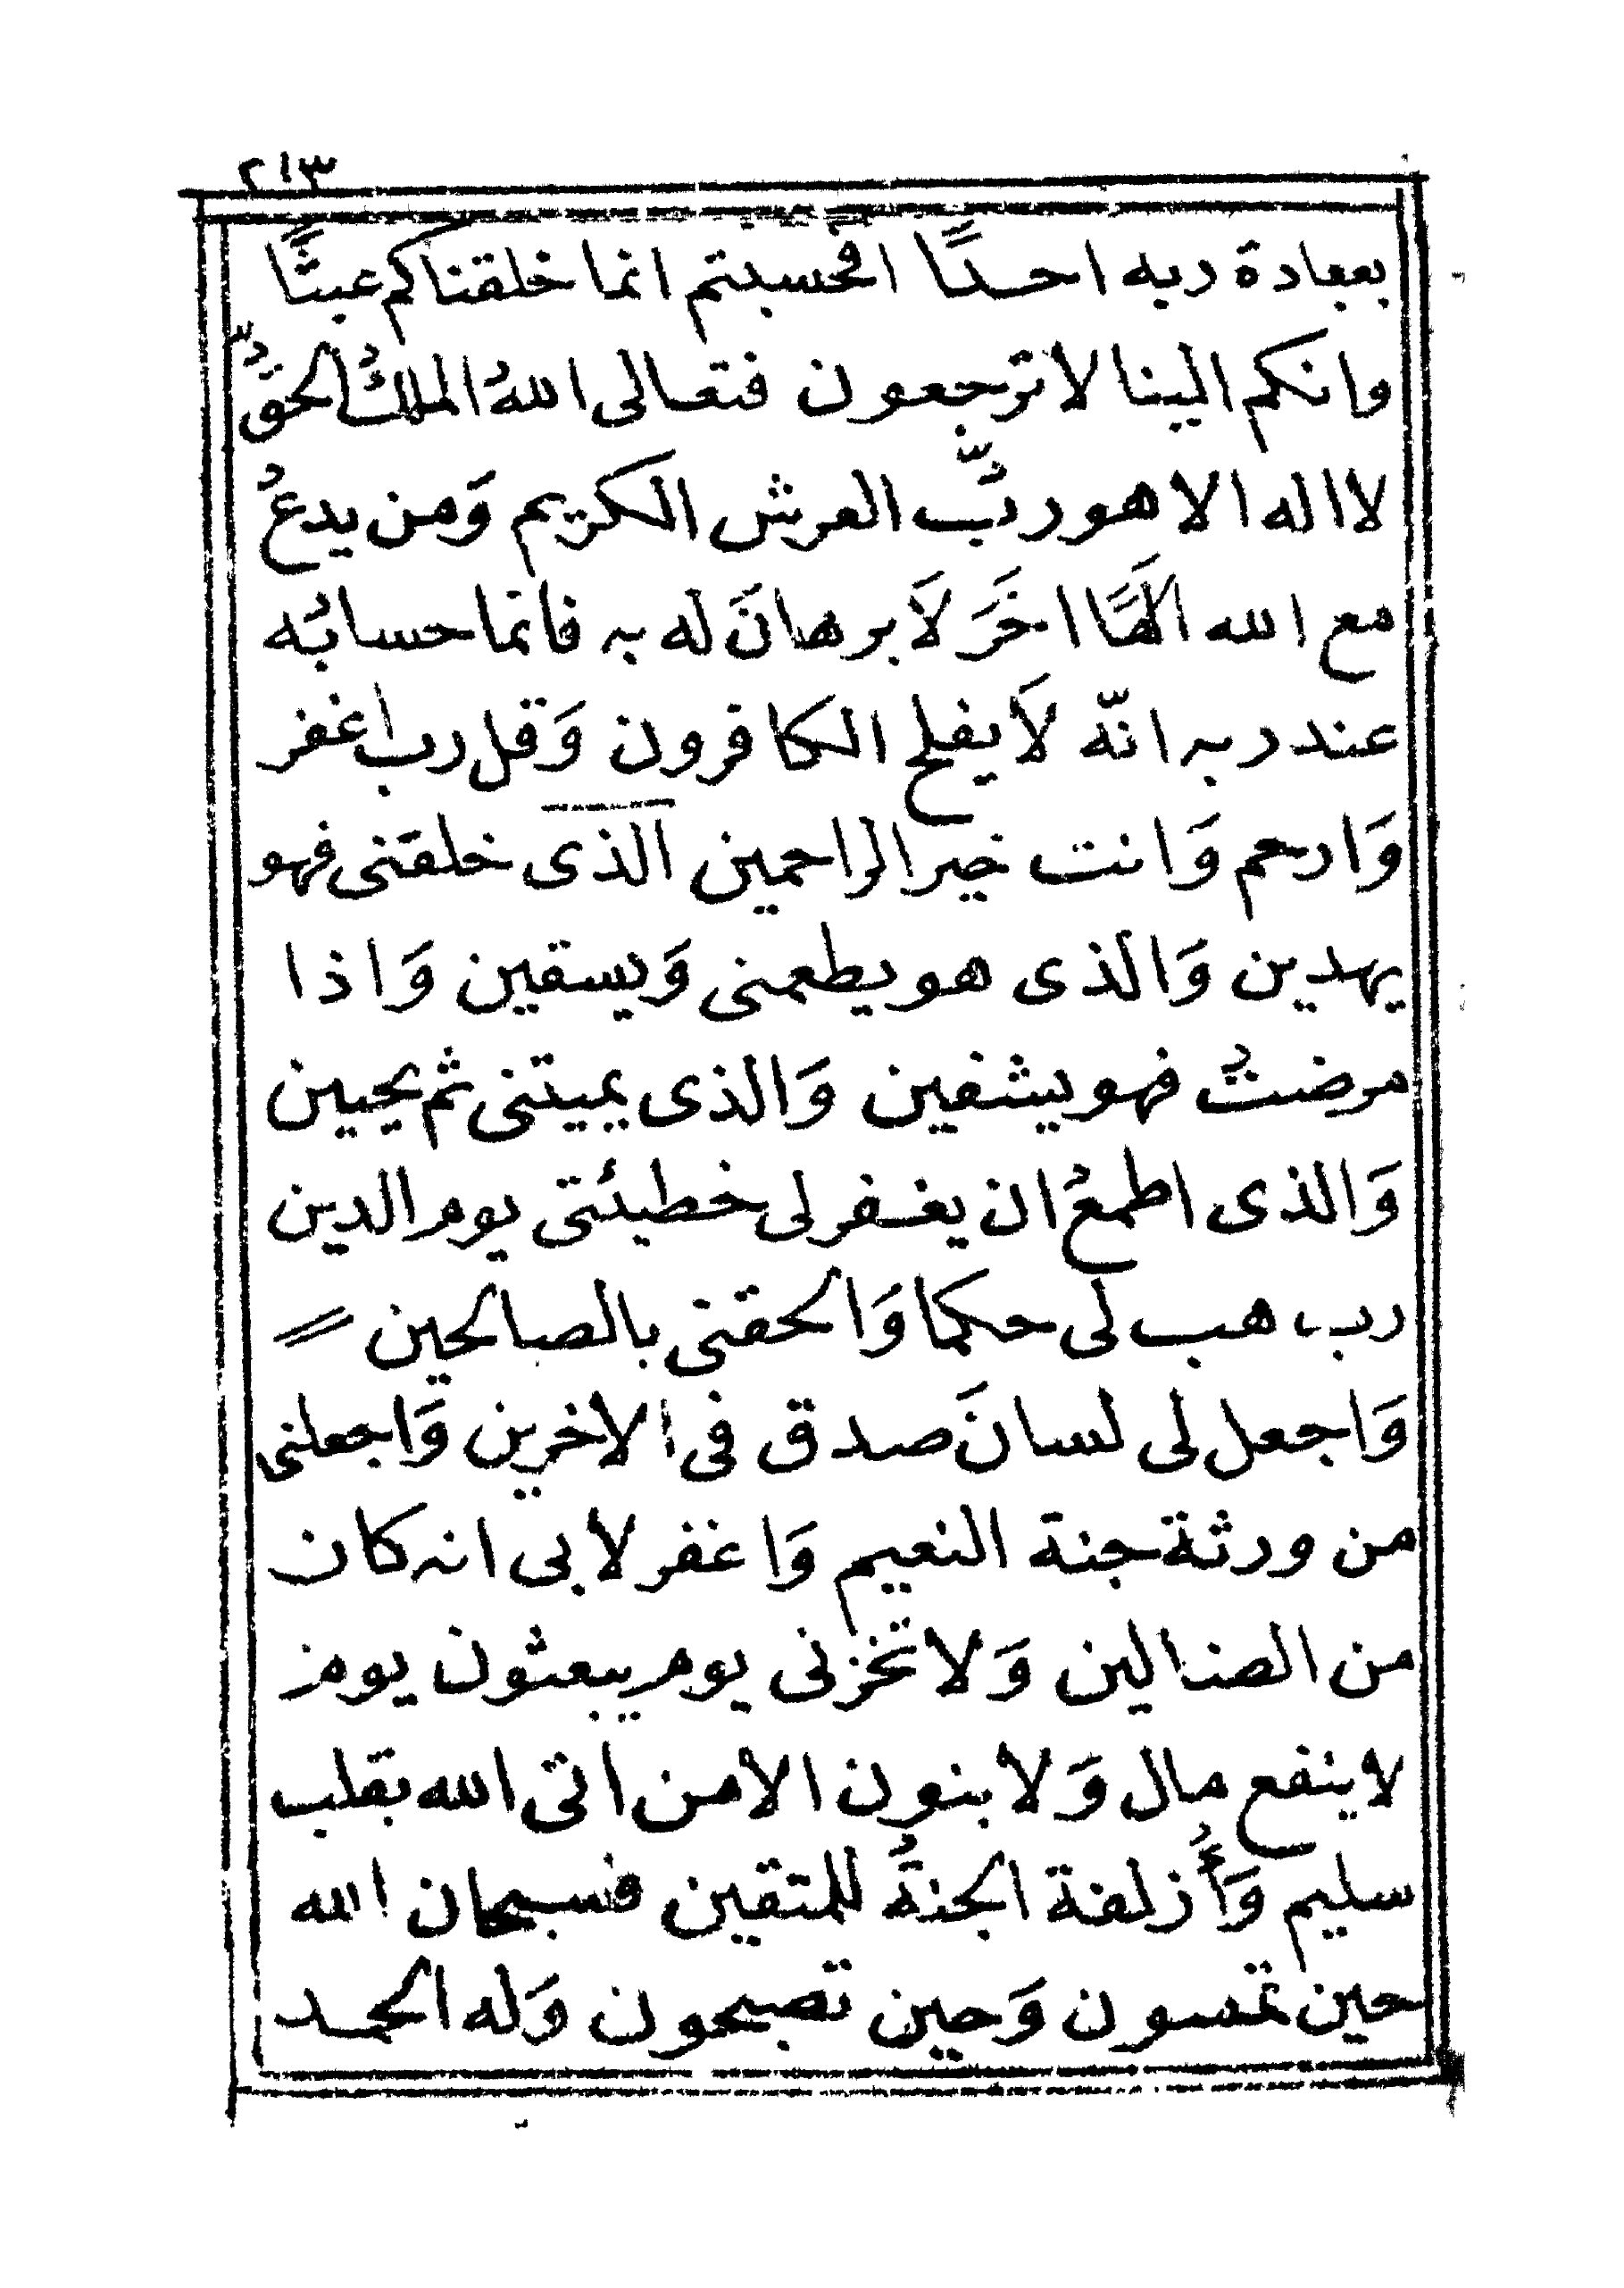 ٢١٣
بعبادة ربه احدًا افحسبتم انما خلقناكم عبثًا
وانكم الينا لا ترجعون فتعالى اللهُ الملكُ الحقُّ
لا اله الا هو ربُّ العرش الكريم وَمن يدعُ
مع الله الَهًا اخَرَ لَا برهانَ له به فانما حسابُه
عند ربه انّه لَا يفلح الكافرون وَقل رب اغفر
وَارحم وَانت خير الراحمين الذى خلقنى فهو
يهدين وَالذى هو يطعمنى وَيسقين وَاذا
مرضتُ فهو يشفين وَالذى يميتنى ثم يحيين
وَالذى اطمعُ ان يغفر لى خطيئتى يوم الدين
رب هب لى حكما وَالحقنى بالصالحين
وَاجعل لى لسانَ صدق فى الاخرين وَاجعلنى
من ورثة جنة النعيم وَاغفر لابى انه كان
من الضالين وَلا تخزنى يوم يبعثون يوم
لا ينفع مال وَلا بنون الا من اتى الله بقلب
سليم وَأُزلفة الجنةُ للمتقين فسبحان الله
حين تمسون وَحين تصبحون وَله الحمد